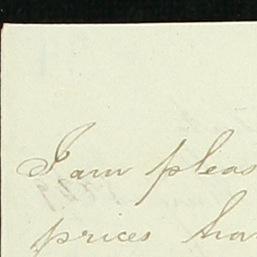 I am pleas
prices ha